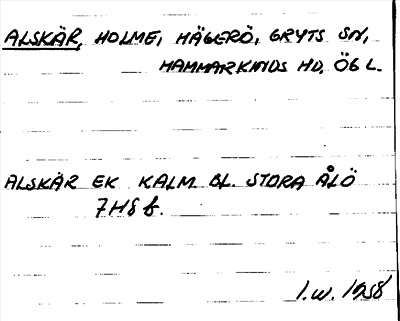 ALSKÄR, HOLME, HÄGERÖ, GRYTS SN,
HAMMARKINDS HD, ÖG L.
ALSKÄR EK KALM BL. STORA ÅLÖ
7H8f.
I.W. 1958